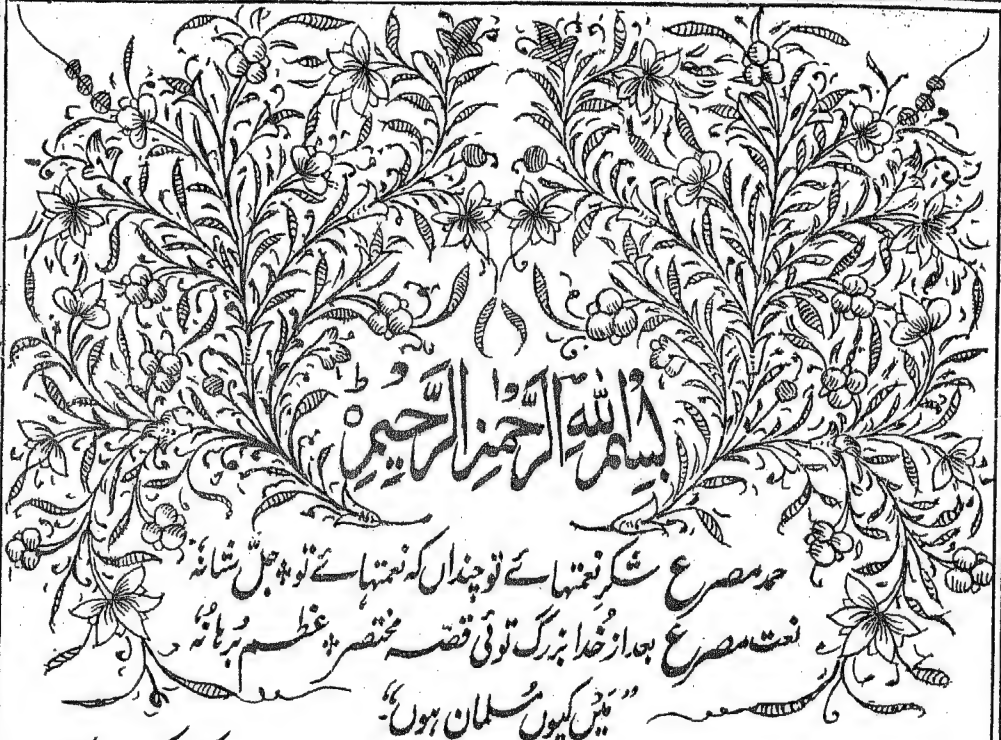 بِسْمِ اللهِ الرَّحْمٰنِ الرَّحِيْمِ ط
حمد مصرع شکرِ نعمتہائے تو چنداں کہ نعمتہائے تو ٭ جلّ شانہٗ
نعت مصرع بعد از خُدا بزرگ توئی قصّہ مختصر ٭ عظم بُرہانہٗ
”مَیں کیوں مُسلمان ہوں“۔